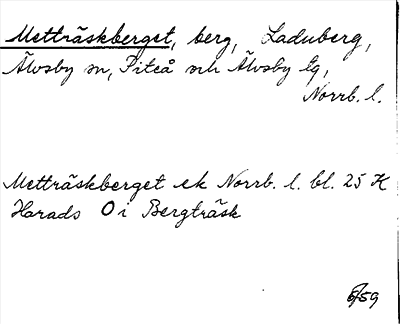 Metträskberget, berg, Laduberg,
Älvsby sn, Piteå och Älvsby tg,
Norrb. l.
Metträskberget ek Norrb. l. bl. 25 K
Harads O i Bergträsk
5/59